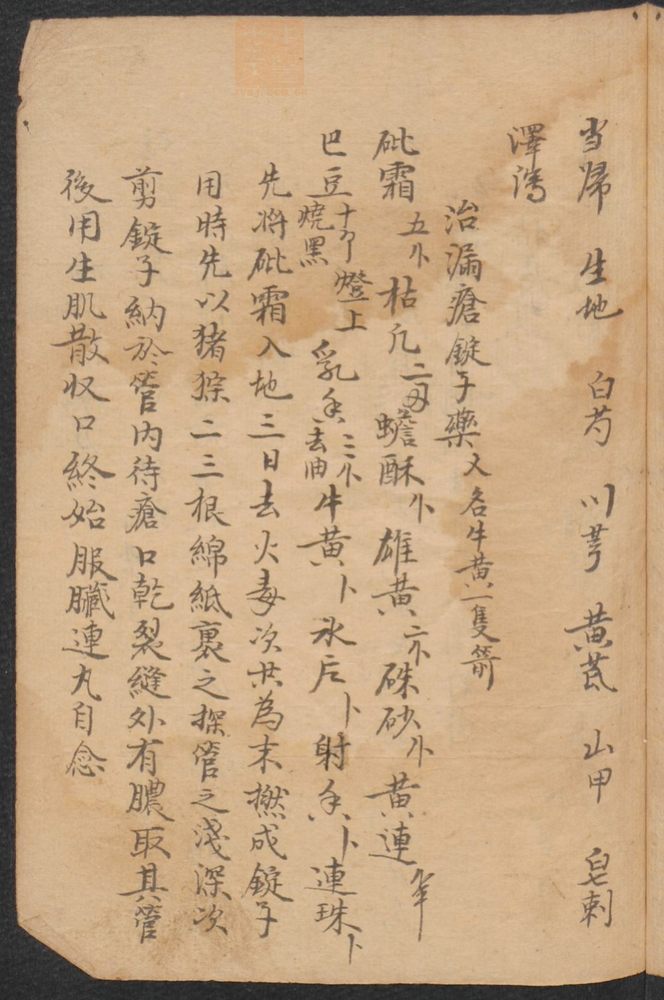 当帰 生地 白芍 川芎 黄芪 山甲 皂刺
澤瀉
治漏瘡錠子藥 又名牛黄一隻箭
砒霜 五卜 枯凡 二 蟾酥 卜 雄黄 二卜 硃砂 卜 黄連
巴豆 十个燈上燒黒 乳香 三卜去油 牛黄 卜 氷片 卜 射香 卜 連珠 卜
先将砒霜入地三日去火毒次共為末撚成錠子
用時先以猪猔二三根綿紙裹之探管之淺深次
剪錠子納於管内待瘡口乾裂縫外有膿取其管
後用生肌散収口終始服臟連丸自愈